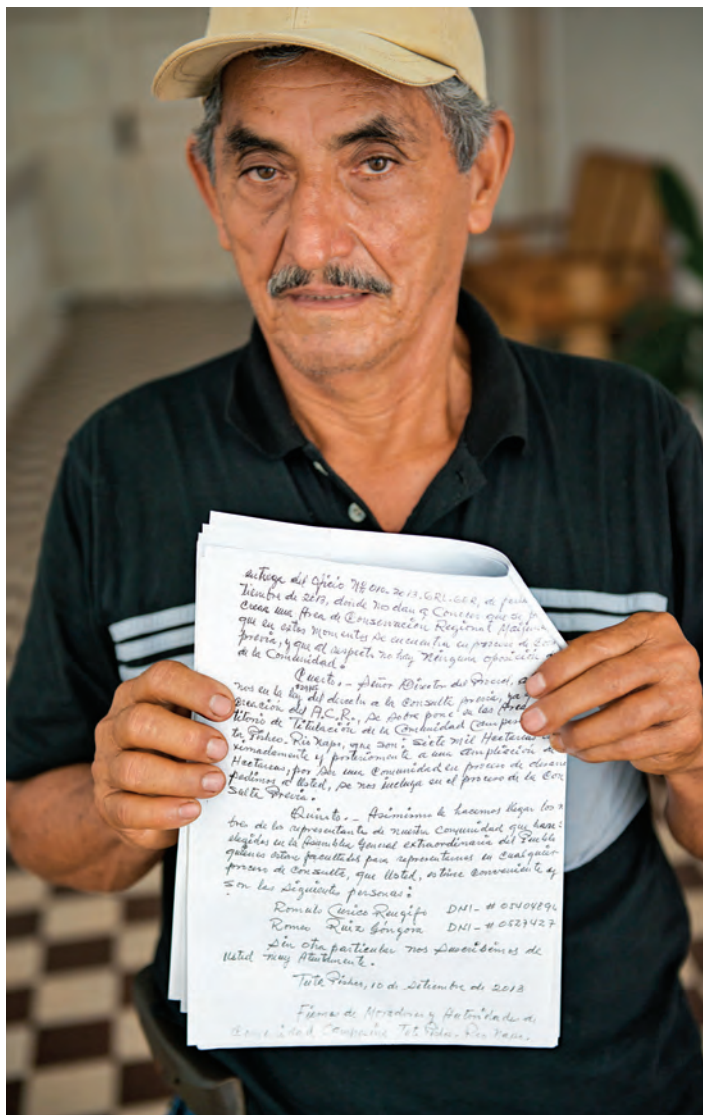 entrega del Oficio Nº 010-2013-GRL-GER, de fecha
tiembre de 2013, donde nos dan a Conocer que se
crear una Area de Conservación Regional
que en estos momentos se encuentra en proceso de
previa, y que al respecto no hay Ninguna oposición
de la Comunidad.
Cuarto.- Señor Director del
nos en la ley del derecho a la Consulta previa, ya
Creación del A.C.R., se sobre pone a las Area
titorio de Titulación de la Comunidad Campe
ta Pishco-Rio Napo, que son: Siete mil Hectareas
ximadamente y posteriormente a una ampliación de
Hectareas, por ser una Comunidad en proceso de desarro
pedimos a Usted, se nos incluya en el proceso de la Con
sulta Previa.
Quinto.- Asimismo le hacemos llegar los n
bres de los representante de nuestra Comunidad que han
elegidos en la Asamblea General extraordinaria del Pueblo
quienes estan facultados para representarnos en cualquier
proceso de Consulta, que Usted, estime Conveniente
son las siguientes personas:
Romulo Curico Rengifo DNI-# 0540489
Romeo Ruiz Góngora DNI-# 0527427
Sin otro particular nos suscribimos de
Usted muy Atentamente.
Tuta Pishco, 10 de Setiembre de 2013
Firmas de Moradores y Autoridades de
Comunidad Campesina Tuta Pishco-Rio Napo.